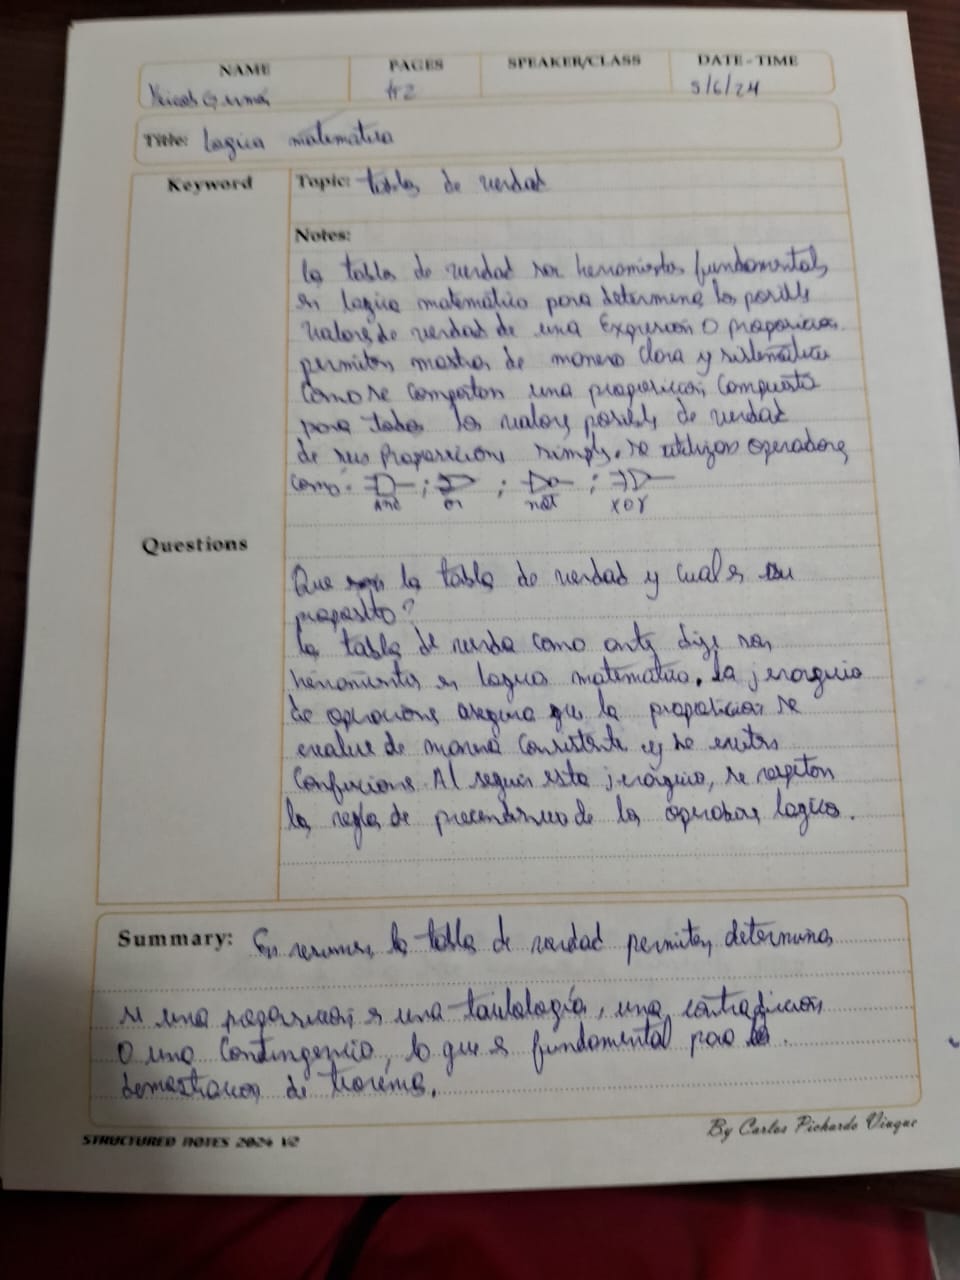 NAME PAGES SPEAKER/CLASS DATE-TIME
#2 5/6/24
Title: Logica matematica
Keyword Topic: tablas de verdad
Notes:
la tabla de verdad son herramientas fundamentales
en logica matematica para determina los posibles
valores de verdad de una Expresion o proposicion.
permiten mostrar de manera clara y sistematica
como se comporton una proposicion compuesta
para todos los valores posibles de verdad
de sus Proposicions simples. se utilizan operadores
como: ; ; ;
And or not xor
Questions
Que son la tabla de verdad y cual es su
proposito?
la tabla de verda como antes dije son
herramientas en logica matematica. la jerarquia
de operacions asegura que la proposicion se
evalue de manera consistente y se evitan
confusions. Al seguir esta jerarquia, se respeton
la regla de de los operadores logicos.
Summary: En resumen, la tabla de verdad permiten determinar
si una es una tautologia, una contradiccion
o una contingencia, lo que es fundamental para la
demostracion de teorema.
STRUCTURED NOTES 2024 V2
By Carlos Pichardo Viuque